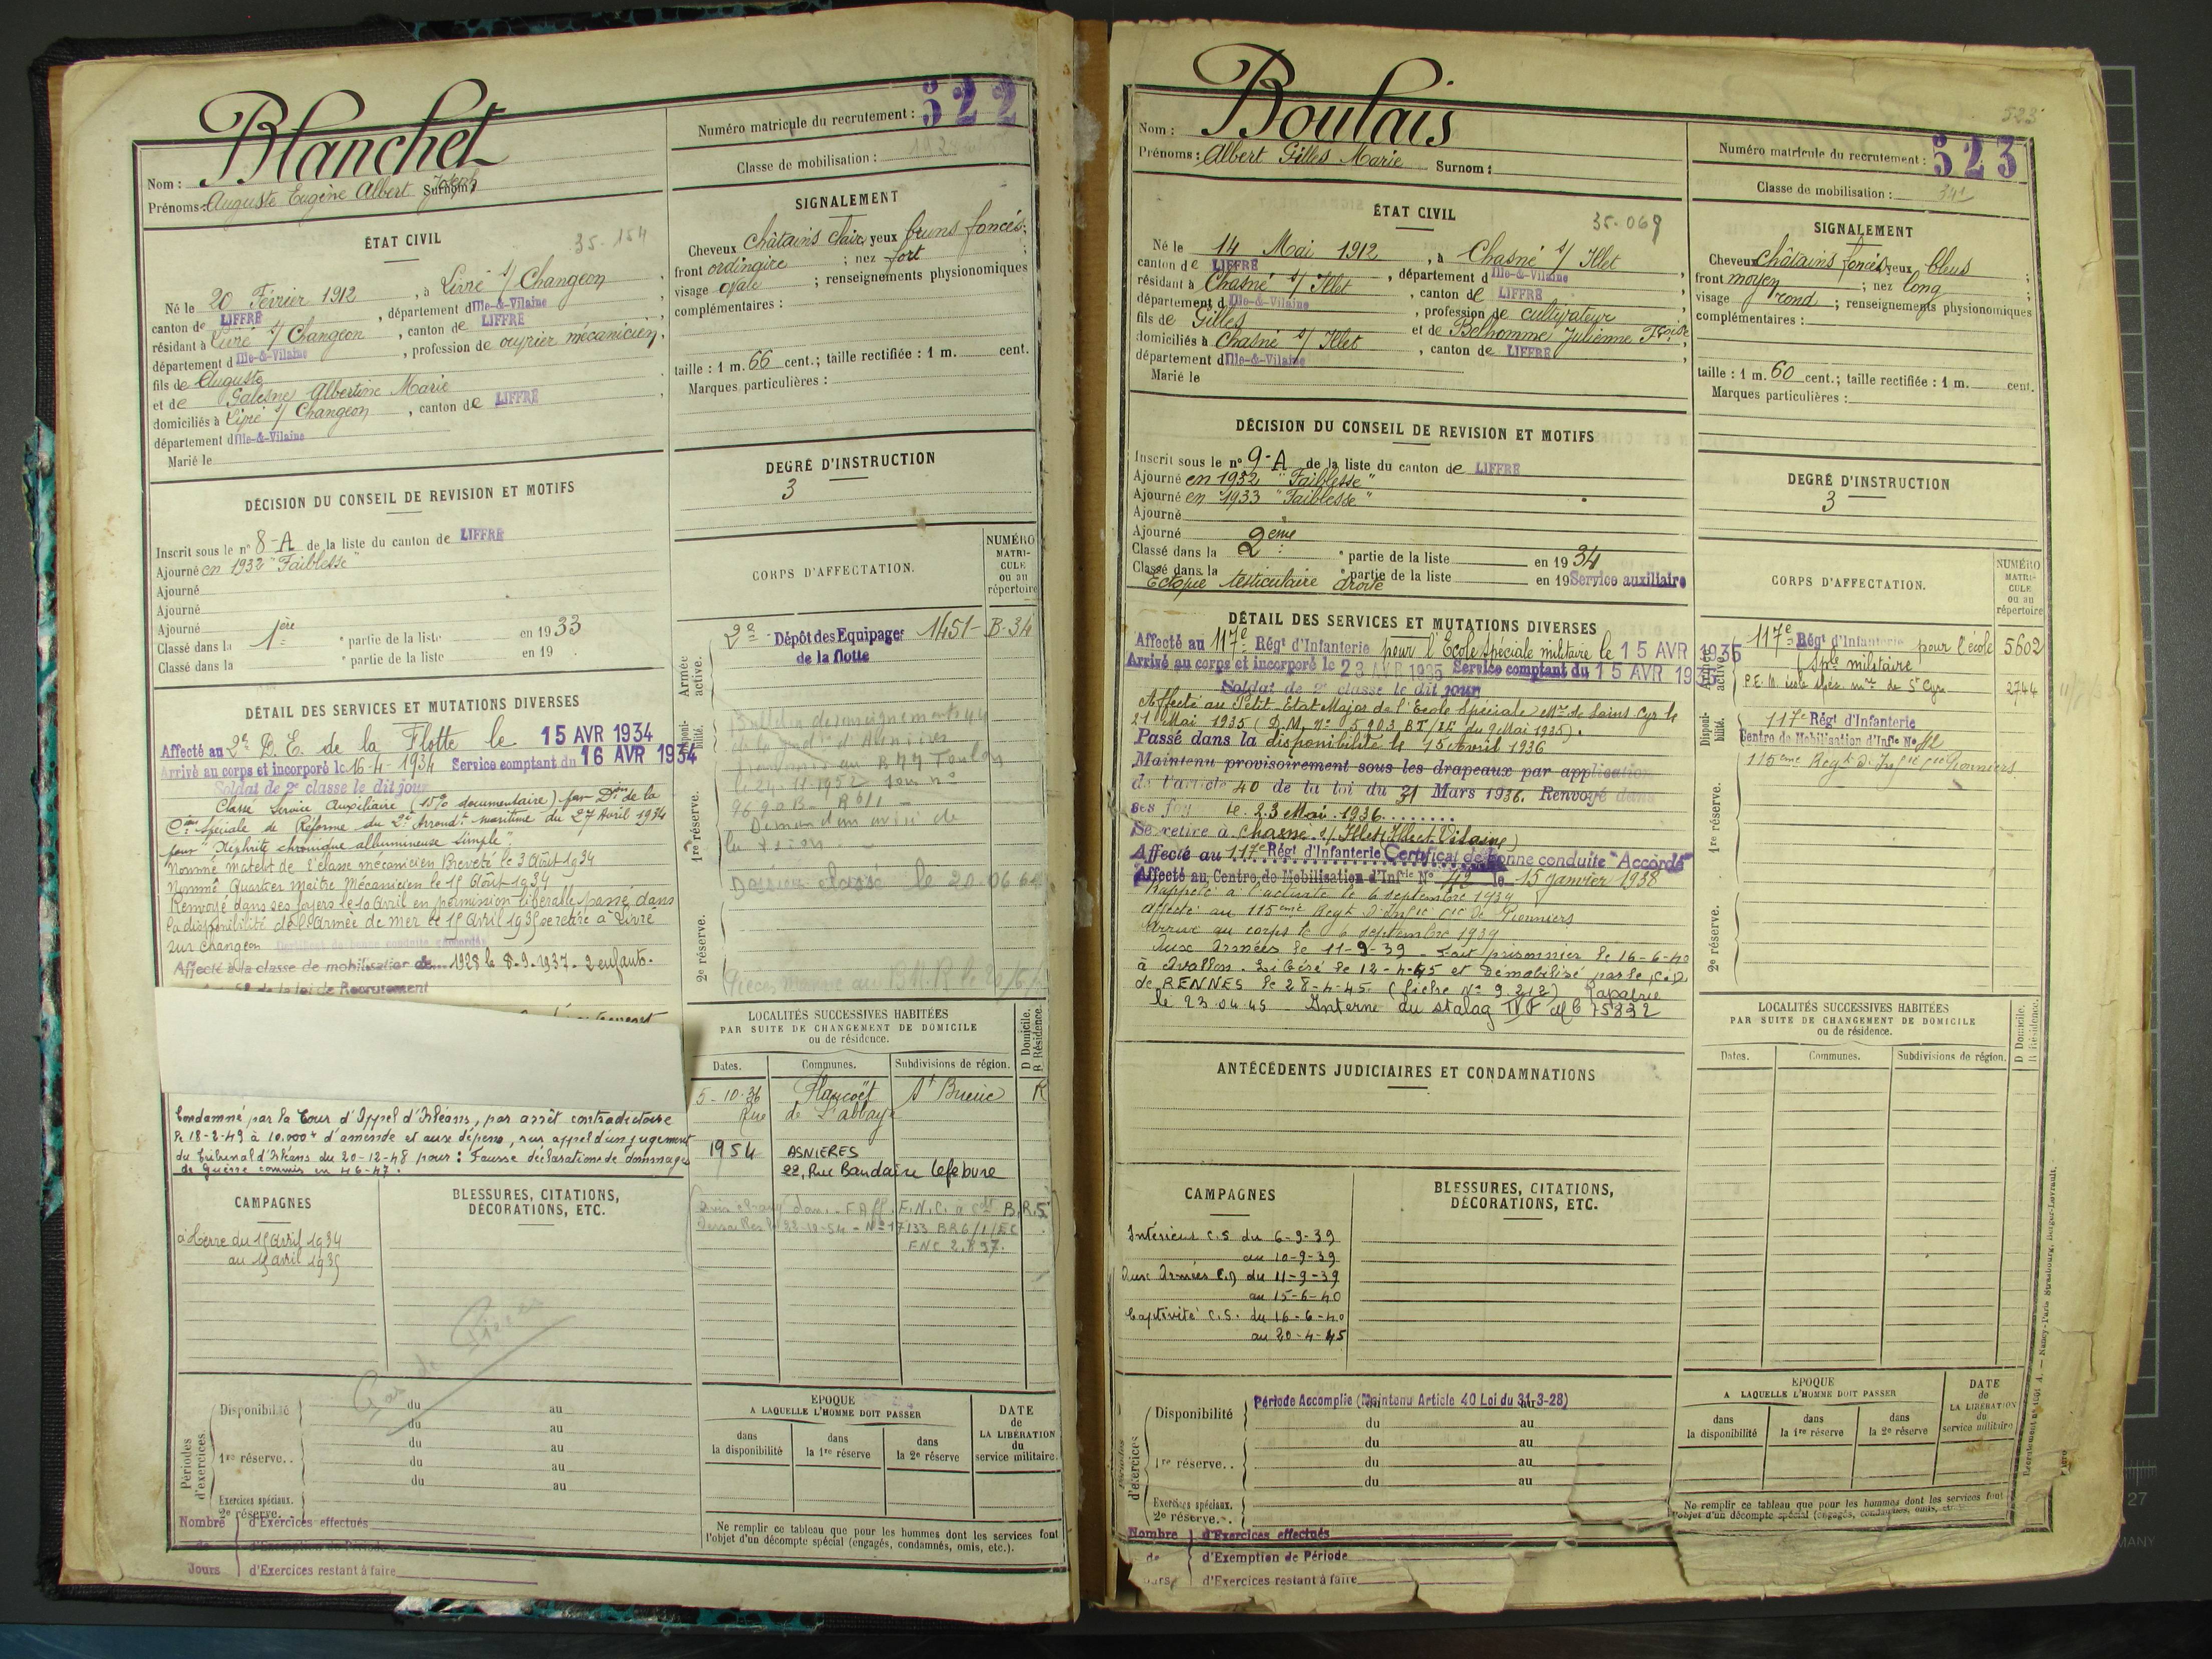 Blanchet
Nom :
Prénoms : Auguste Eugène Albert Joseph Surnom :
Numéro matricule du recrutement : 522
Classe de mobilisation :
ÉTAT CIVIL
35-154
Né le 20 Février 1912, à Livré s/ Changeon,
canton de LIFFRÉ, département d Ille-&-Vilaine,
résidant à Livré s/ Changeon, canton de LIFFRÉ,
département d Ille-&-Vilaine, profession de ouvrier mécanicien,
fils de Auguste
et de Galesne Albertine Marie
domiciliés à Livré s/ Changeon, canton de LIFFRÉ,
département d Ille-&-Vilaine
Marié le
DÉCISION DU CONSEIL DE REVISION ET MOTIFS
Inscrit sous le n° 8-A de la liste du canton de LIFFRÉ
Ajourné en 1932 "Faiblesse"
Ajourné
Ajourné
Ajourné
Classé dans la 1ère partie de la liste en 1933
Classé dans la partie de la liste en 19 .
DÉTAIL DES SERVICES ET MUTATIONS DIVERSES
Affecté au 2e D. E. de la Flotte le 15 AVR 1934
Arrivé au corps et incorporé le 16-4-1934 Service comptant du 16 AVR 1934
Soldat de 2e classe le dit jour
Classé Service Auxiliaire (15% documentaire) par Dion de la
Con Spéciale de Réforme du 2e Arrondt maritime du 27 Avril 1934
pour "Néphrite chronique albumineuse simple"
Nommé Matelot de 1e classe mécanicien Breveté le 3 Août 1934
Nommé Quartier Maître Mécanicien le 15 Août 1934
Renvoyé dans ses foyers le 10 Avril en permission libérable passé dans
la disponibilité de l'Armée de mer le 15 Avril 1935 se retire à Livré
sur Changeon Certificat de bonne conduite accordé
Affecté à la classe de mobilisation de 1928 le 8-9-1937 - 2 enfants.
58 de la loi de Recrutement
Condamné par la Cour d'Appel d'Orléans, par arrêt contradictoire
le 18-2-49 à 10.000f d'amende et aux dépens, sur appel d'un jugement
du Tribunal d'Orléans du 20-12-48 pour : Fausse déclarations de dommages
de Guerre commis en 46-47.
CAMPAGNES
à Terre du 15 Avril 1934
au 15 avril 1935
BLESSURES, CITATIONS,
DÉCORATIONS, ETC.
Pas de Pièces
Périodes d'exercices.
Disponibilité du au
du au
1re réserve.. du au
du au
du au
Exercices spéciaux.
2e réserve.
Nombre de Jours
d'Exercices effectués
d'Exemption de Période
d'Exercices restant à faire
SIGNALEMENT
Cheveux châtains clairs yeux bruns foncés;
front ordinaire ; nez fort ;
visage ovale ; renseignements physionomiques
complémentaires :
taille : 1 m. 66 cent.; taille rectifiée : 1 m. cent.
Marques particulières :
DEGRÉ D'INSTRUCTION
3
CORPS D'AFFECTATION.
NUMÉRO
MATRI-
CULE
ou au
répertoire
Armée active.
2e Dépôt des Equipages 1451-B-34
de la flotte
Disponibilité.
Bulletin de renseignements
d'Asnières
Toulon
le 24-11-1952
1re réserve.
Dossier classé le 20.06.6
2e réserve.
LOCALITÉS SUCCESSIVES HABITÉES
PAR SUITE DE CHANGEMENT DE DOMICILE
ou de résidence.
D Domicile.
R Résidence.
Dates. Communes. Subdivisions de région.
5-10-36 Plancoët St Brieuc R
Rue de l'abbaye
1954 ASNIERES
22, Rue Baudaire Lefebvre
22-10-54 - N° 17133 BR6/1/EC
FNC 2.897.
EPOQUE
A LAQUELLE L'HOMME DOIT PASSER
dans la disponibilité
dans la 1re réserve
dans la 2e réserve
DATE
de
LA LIBÉRATION
du
service militaire.
Ne remplir ce tableau que pour les hommes dont les services font
l'objet d'un décompte spécial (engagés, condamnés, omis, etc.).
523
Boulais
Nom :
Prénoms : Albert Gilles Marie Surnom :
Numéro matricule du recrutement : 523
Classe de mobilisation :
ÉTAT CIVIL
35-069
Né le 14 Mai 1912, à Chasné s/ Illet
canton de LIFFRÉ, département d Ille-&-Vilaine,
résidant à Chasné s/ Illet, canton de LIFFRÉ
département d Ille-&-Vilaine, profession de cultivateur
fils de Gilles et de Belhomme Julienne Fçoise
domiciliés à Chasné s/ Illet, canton de LIFFRÉ,
département d Ille-&-Vilaine
Marié le
DÉCISION DU CONSEIL DE REVISION ET MOTIFS
Inscrit sous le n° 9-A de la liste du canton de LIFFRÉ
Ajourné en 1932 "Faiblesse"
Ajourné en 1933 "Faiblesse"
Ajourné
Ajourné
Classé dans la 2ème partie de la liste en 1934
Classé dans la partie de la liste en 19 Service auxiliaire
Ectopie testiculaire droite
DÉTAIL DES SERVICES ET MUTATIONS DIVERSES
Affecté au 117e Régt d'Infanterie pour l'Ecole Spéciale militaire le 15 AVR 1935
Arrivé au corps et incorporé le 23 AVR 1935 Service comptant du 15 AVR 1935
Soldat de 2e classe le dit jour
Affecté au Petit Etat Major de l'Ecole Spéciale Mre de Saint Cyr le
21 Mai 1935 (D.M. N° 5903 BT/EE du 9 Mai 1935).
Passé dans la disponibilité le 15 Avril 1936
Maintenu provisoirement sous les drapeaux par application
de l'article 40 de la loi du 31 Mars 1936. Renvoyé dans
ses foy le 23 Mai 1936.
Se retire à Chasné s/ Illet (Ille et Vilaine)
Affecté au 117e Régt d'Infanterie Certificat de Bonne conduite "Accordé"
Affecté au Centre de Mobilisation d'Infie N° 42 le 15 janvier 1938
Rappelé à l'activité le 6 septembre 1939
affecté au 115ème Régt d'Infie Cie de Pionniers
Arrivé au corps le 6 septembre 1939
Aux Armées le 11-9-39 - Fait prisonnier le 16-6-40
à Avallon. Libéré le 12-4-45 et démobilisé par le C.D.
de RENNES le 28-4-45. (fiche N° 9.212) Rapatrié
le 23.04.45 Interné du stalag IV F Mle 75832
ANTÉCÉDENTS JUDICIAIRES ET CONDAMNATIONS
CAMPAGNES
Intérieur C.S du 6-9-39
au 10-9-39
Aux Armées C.D du 11-9-39
au 15-6-40
Captivité C.S. du 16-6-40
au 20-4-45
BLESSURES, CITATIONS,
DÉCORATIONS, ETC.
Périodes d'exercices
Disponibilité Période Accomplie (Maintenu Article 40 Loi du 31-3-28)
du au
du au
1re réserve.. du au
du au
Exercices spéciaux.
2e réserve..
Nombre de Jours
d'Exercices effectués
d'Exemption de Période
d'Exercices restant à faire
SIGNALEMENT
Cheveux châtains foncés yeux bleus ;
front moyen ; nez long ;
visage rond ; renseignements physionomiques
complémentaires :
taille : 1 m. 60 cent.; taille rectifiée : 1 m. cent.
Marques particulières :
DEGRÉ D'INSTRUCTION
3
CORPS D'AFFECTATION.
NUMÉRO
MATRI-
CULE
ou au
répertoire
Armée active.
117e Régt d'Infanterie pour l'école 5602
Sple militaire
P.E.M. école Spéc. mre de St Cyr 2744
Disponibilité.
117e Régt d'Infanterie
Centre de Mobilisation d'Infie N° 42
1re réserve.
115ème Regt d'Infie Cie Pionniers
2e réserve.
LOCALITÉS SUCCESSIVES HABITÉES
PAR SUITE DE CHANGEMENT DE DOMICILE
ou de résidence.
D Domicile.
R Résidence.
Dates. Communes. Subdivisions de région.
EPOQUE
A LAQUELLE L'HOMME DOIT PASSER
dans la disponibilité
dans la 1re réserve
dans la 2e réserve
DATE
de
LA LIBÉRATION
du
service militaire
Ne remplir ce tableau que pour les hommes dont les services font
l'objet d'un décompte spécial (engagés, condamnés, omis, etc.
Nancy-Paris-Strasbourg, Berger-Levrault.
27
MANY